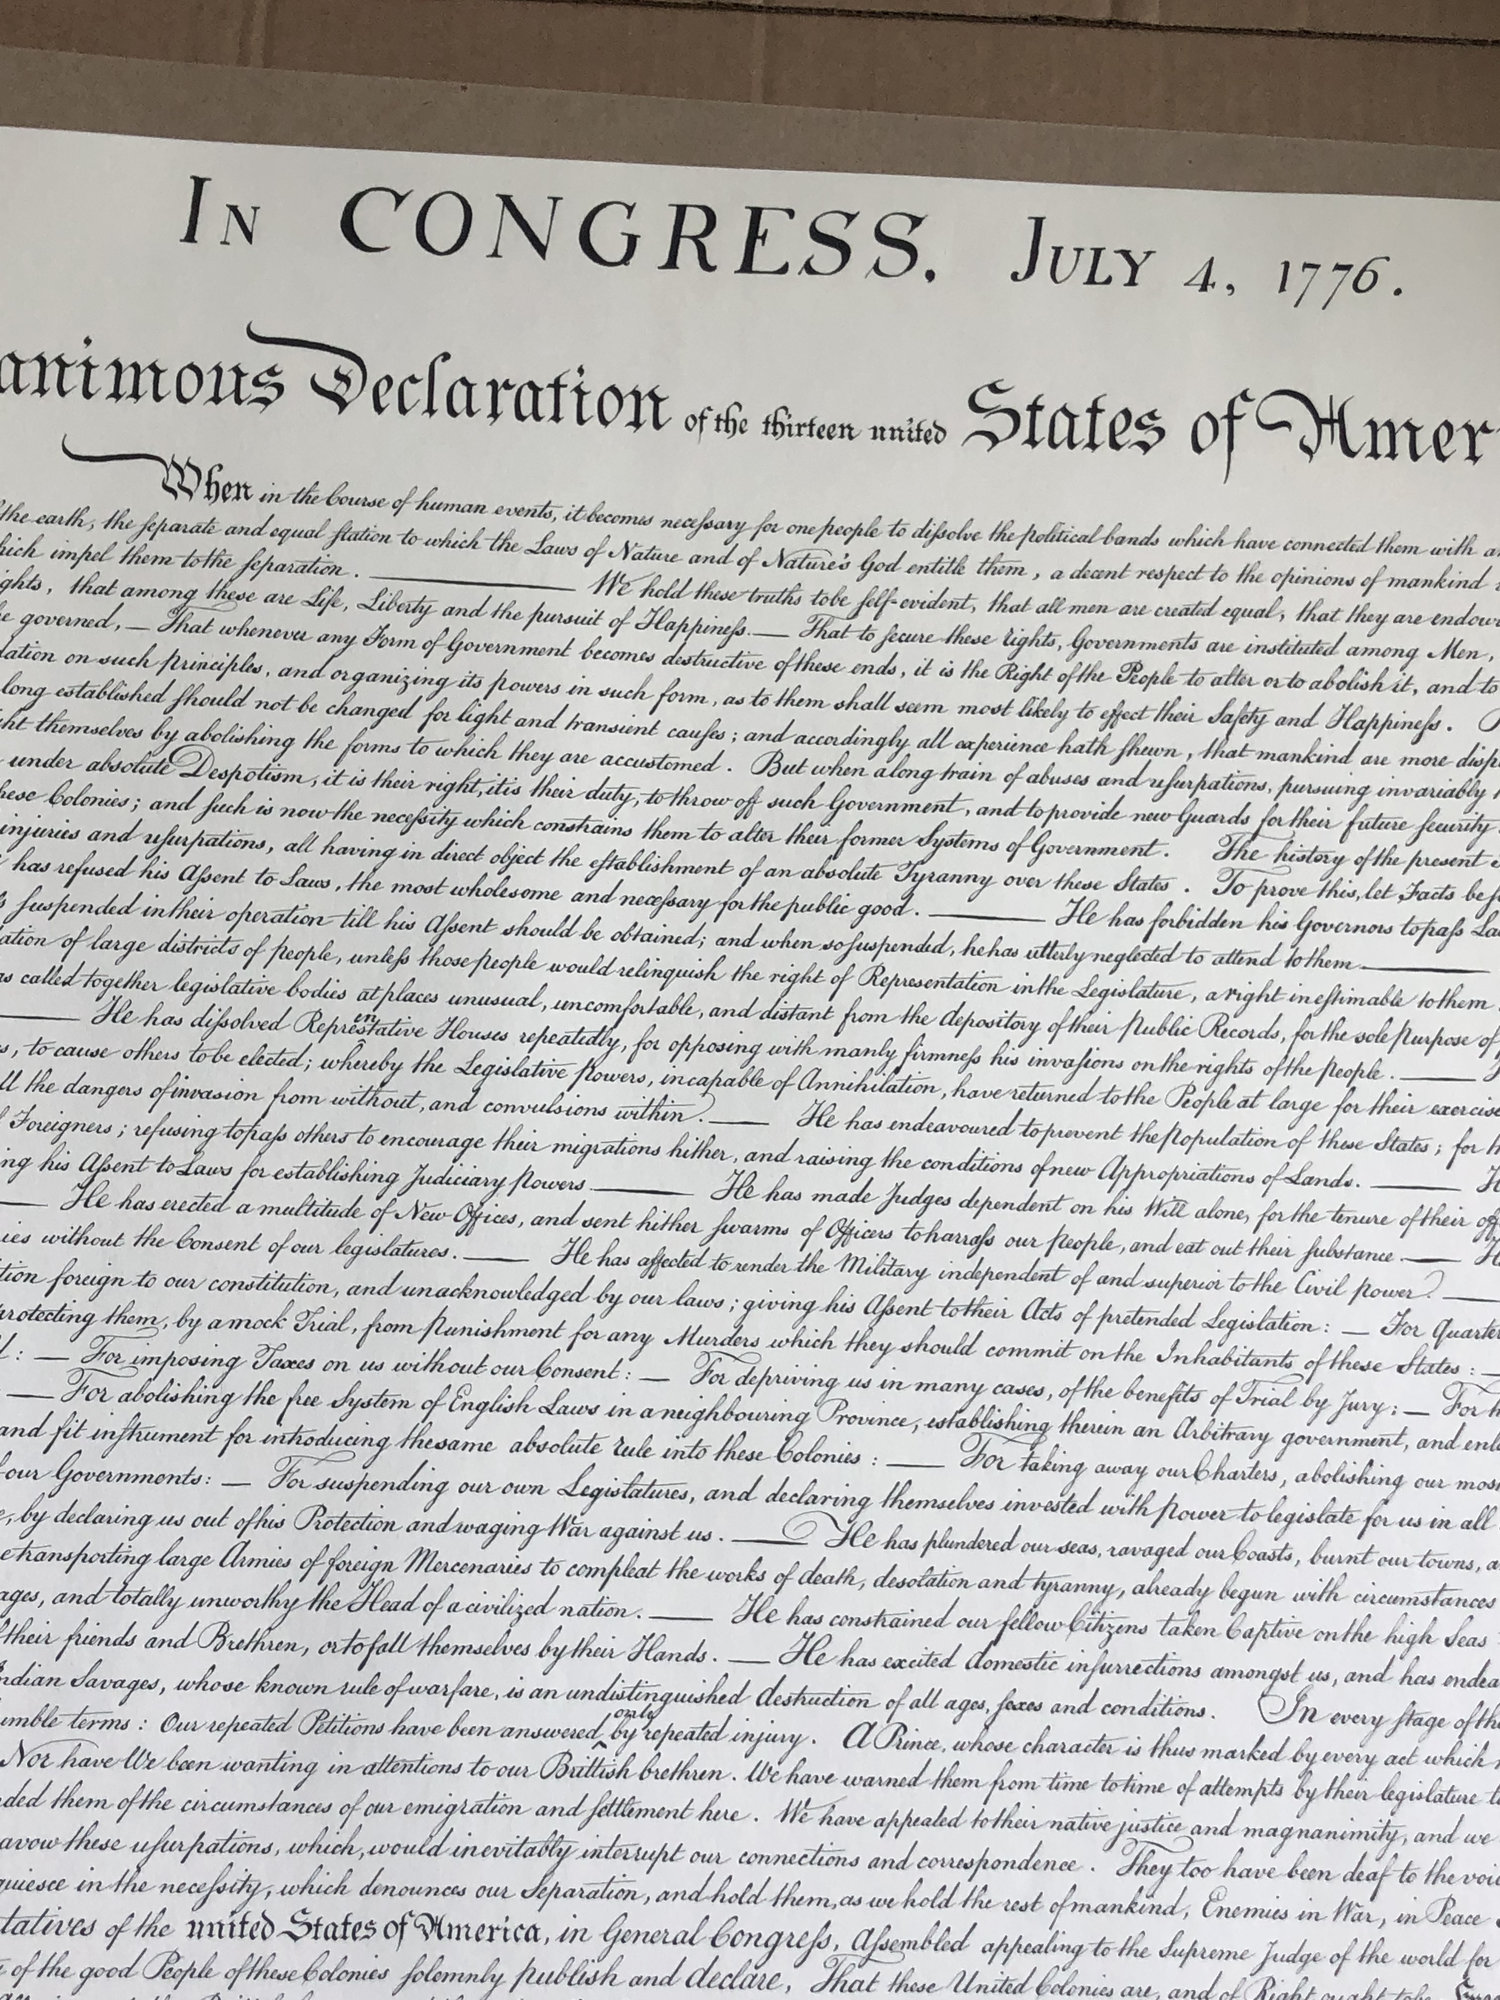 In CONGRESS, July 4, 1776.
animous Declaration of the thirteen united States of Amer
When in the Course of human events, it becomes neceſsary for one people to diſsolve the political bands which have connected them with an
the earth, the ſeparate and equal ſtation to which the Laws of Nature and of Nature's God entitle them, a decent respect to the opinions of mankind
hich impel them to the ſeparation. — We hold these truths to be ſelf-evident, that all men are created equal, that they are endow
ights, that among these are Life, Liberty and the pursuit of Happineſs. — That to ſecure these rights, Governments are instituted among Men,
e governed, — That whenever any Form of Government becomes destructive of these ends, it is the Right of the People to alter or to abolish it, and to
dation on such principles, and organizing its powers in such form, as to them shall seem most likely to effect their Safety and Happineſs.
long established ſhould not be changed for light and transient cauſes; and accordingly all experience hath ſhewn, that mankind are more disp
ht themselves by abolishing the forms to which they are accustomed. But when a long train of abuses and uſurpations, pursuing invariably
under absolute Despotism, it is their right, it is their duty, to throw off such Government, and to provide new Guards for their future ſecurity.
hese Colonies; and ſuch is now the neceſsity which constrains them to alter their former Systems of Government. The history of the present
injuries and uſurpations, all having in direct object the eſtablishment of an absolute Tyranny over these States. To prove this, let Facts be ſ
has refused his Aſsent to Laws, the most wholesome and neceſsary for the public good. — He has forbidden his Governors to paſs La
s ſuspended in their operation till his Aſsent should be obtained; and when so suspended, he has utterly neglected to attend to them. —
ation of large districts of people, unleſs those people would relinquish the right of Representation in the Legislature, a right ineſtimable to them
as called together legislative bodies at places unusual, uncomfortable, and distant from the depository of their Public Records, for the sole purpose of
— He has diſsolved Representative Houses repeatedly, for opposing with manly firmneſs his invaſions on the rights of the people. —
s, to cause others to be elected; whereby the Legislative powers, incapable of Annihilation, have returned to the People at large for their exercise
ll the dangers of invasion from without, and convulsions within. — He has endeavoured to prevent the population of these States; for
Foreigners; refusing to paſs others to encourage their migrations hither, and raising the conditions of new Appropriations of Lands. —
ing his Aſsent to Laws for establishing Judiciary powers. — He has made Judges dependent on his Will alone, for the tenure of their off
— He has erected a multitude of New Offices, and sent hither ſwarms of Officers to harraſs our people, and eat out their ſubstance. —
ies without the Consent of our legislatures. — He has affected to render the Military independent of and superior to the Civil power. —
tion foreign to our constitution, and unacknowledged by our laws; giving his Aſsent to their Acts of pretended Legislation: — For Quarter
rotecting them, by a mock Trial, from punishment for any Murders which they should commit on the Inhabitants of these States: —
: — For imposing Taxes on us without our Consent: — For depriving us in many cases, of the benefits of Trial by Jury: — For
— For abolishing the free System of English Laws in a neighbouring Province, establishing therein an Arbitrary government, and enl
and fit inſtrument for introducing the same absolute rule into these Colonies: — For taking away our Charters, abolishing our most
our Governments: — For suspending our own Legislatures, and declaring themselves invested with power to legislate for us in all
e, by declaring us out of his Protection and waging War against us. — He has plundered our seas, ravaged our Coasts, burnt our towns, a
transporting large Armies of foreign Mercenaries to compleat the works of death, desolation and tyranny, already begun with circumstances
ages, and totally unworthy the Head of a civilized nation. — He has constrained our fellow Citizens taken Captive on the high Seas
their friends and Brethren, or to fall themselves by their Hands. — He has excited domestic inſurrections amongst us, and has endea
ndian Savages, whose known rule of warfare, is an undistinguished destruction of all ages, ſexes and conditions. In every ſtage of the
umble terms: Our repeated Petitions have been answered only by repeated injury. A Prince, whose character is thus marked by every act which
Nor have We been wanting in attentions to our Brittish brethren. We have warned them from time to time of attempts by their legislature to
ded them of the circumstances of our emigration and ſettlement here. We have appealed to their native justice and magnanimity, and we
avow these uſurpations, which, would inevitably interrupt our connections and correspondence. They too have been deaf to the voi
quiesce in the neceſsity, which denounces our Separation, and hold them, as we hold the rest of mankind, Enemies in War, in Peace
tatives of the united States of America, in General Congreſs, Aſsembled, appealing to the Supreme Judge of the world for
of the good People of these Colonies ſolemnly publish and declare, That these United Colonies are, and of Right ought to be